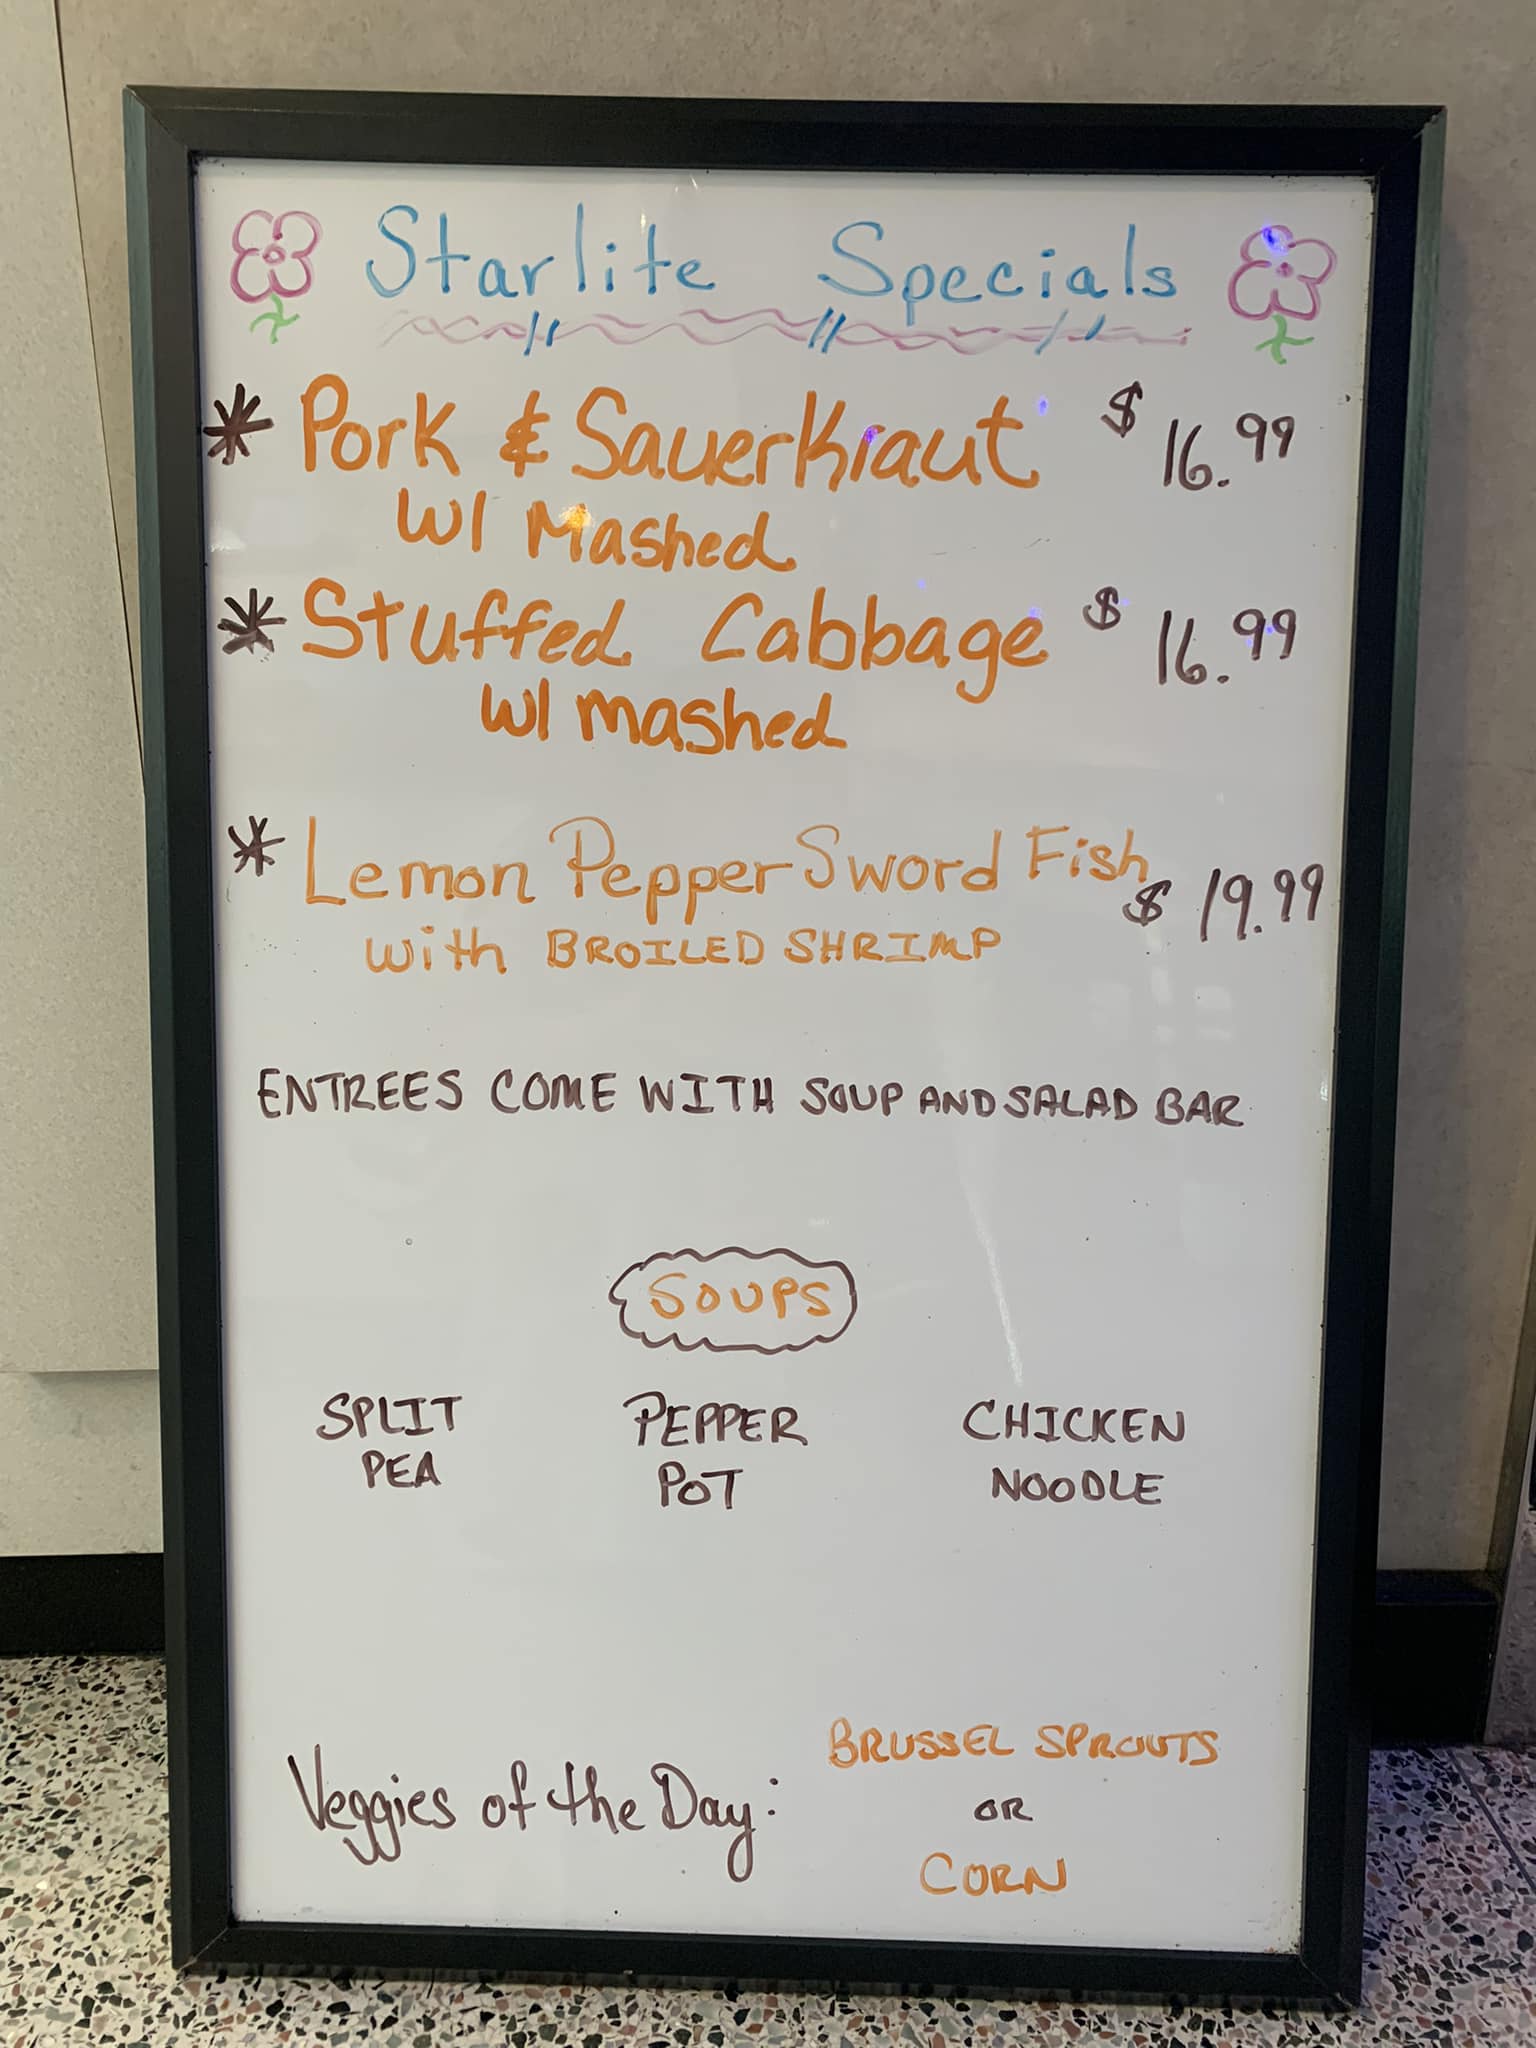 Starlite Specials
* Pork & Sauerkraut $16.99
W/ Mashed
* Stuffed Cabbage $16.99
W/ mashed
* Lemon Pepper Sword Fish
$19.99
with BROILED SHRIMP
ENTREES COME WITH SOUP AND SALAD BAR
SOUPS
SPLIT
PEA
PEPPER
POT
CHICKEN
NOODLE
Veggies of the Day:
BRUSSEL SPROUTS
OR
CORN